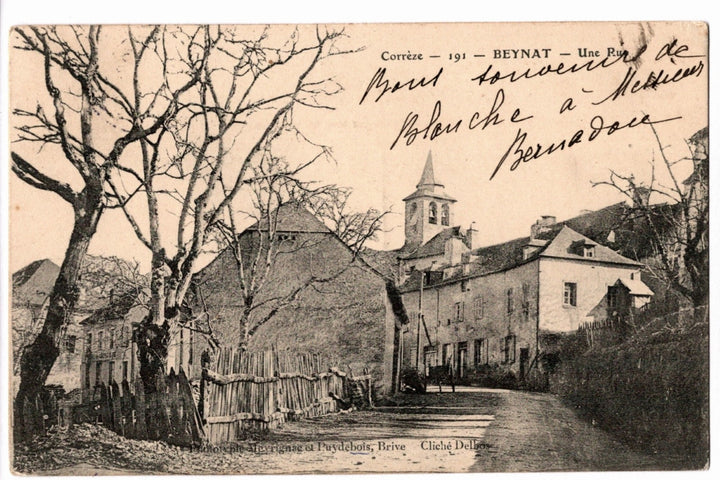 Corrèze — 191 — BEYNAT — Une Rue
Bont souvenir de
Blanche à Messieur
Bernadou
Phototypie Meyrignac et Puydebois, Brive Cliché Delbos